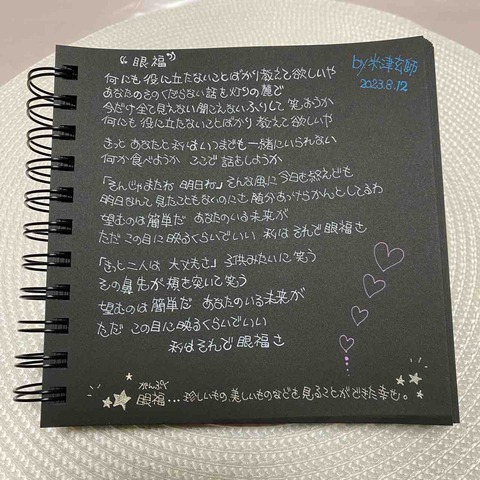 "眼福"
by 米津玄師
2023.8.12
何にも役に立たないことばかり教えて欲しいや
あなたのそのくだらない話を灯りの麓で
今だけ全て見えない聞こえないふりして 笑おうか
何にも役に立たないことばかり 教えて欲しいや
きっと あなたと私はいつまでも 一緒にいられない
何か食べようか ここで 話をしようか
「そんじゃまたね 明日ね」 そんな風に 今日も終えども
明日なんて 見たこともないのにさ 随分あっけらかんとしてるわ
望むのは 簡単だ あなたのいる未来が
ただ この目に映るくらいでいい 私は それで 眼福さ
「きっと二人は 大丈夫さ」 子供みたいに 笑う
その鼻先が 頬を突いて 笑う
望むのは 簡単だ あなたのいる未来が
ただ この目に映るくらいでいい
私は それで 眼福さ
がんぷく
眼福...珍しいもの、美しいものなどを見ることができた幸せ。